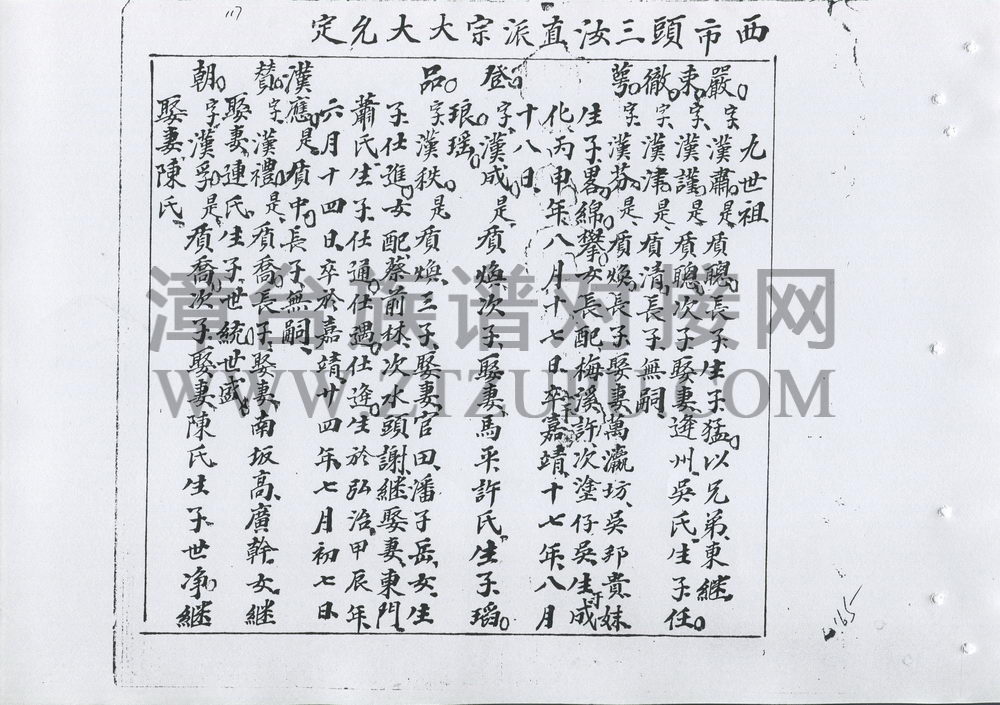 117
西市頭三汝直派宗大大允定
九世祖
嚴。字漢肅。是質聰。長子生子猛。以兄弟東継
東。字漢謹。是質聰。次子娶妻逄州吳氏。生子任。
徹。字漢津。是質清。長子無嗣
萼。字漢芬。是質煥。長子娶妻萬瀛坊吳邦貴妹
生子畧。綿。攀。女長配梅溪許次塗仔吳生於成
化丙申年八月十七日卒嘉靖十七年八月
十八日
登。字漢成。是質煥次子娶妻馬平許氏生子瑫。
琅。瑶。
品。字漢秩。是質煥三子。娶妻官田潘子岳女生
子仕進。女配蔡前林次水頭謝継娶妻東門
蕭氏生子仕通。仕遇。仕逄。生於弘治甲辰年
六月十四日卒於嘉靖廿四年七月初七日
漢應。是質中。長子無嗣
贊。字漢禮。是質喬。長子。娶妻南坂高廣幹女継
娶妻連氏生子世統世盛
朝。字漢孚。是質喬次子娶妻陳氏生子世净継
娶妻陳氏
漳台族谱对接网
WWW.ZTZUPU.COM
165